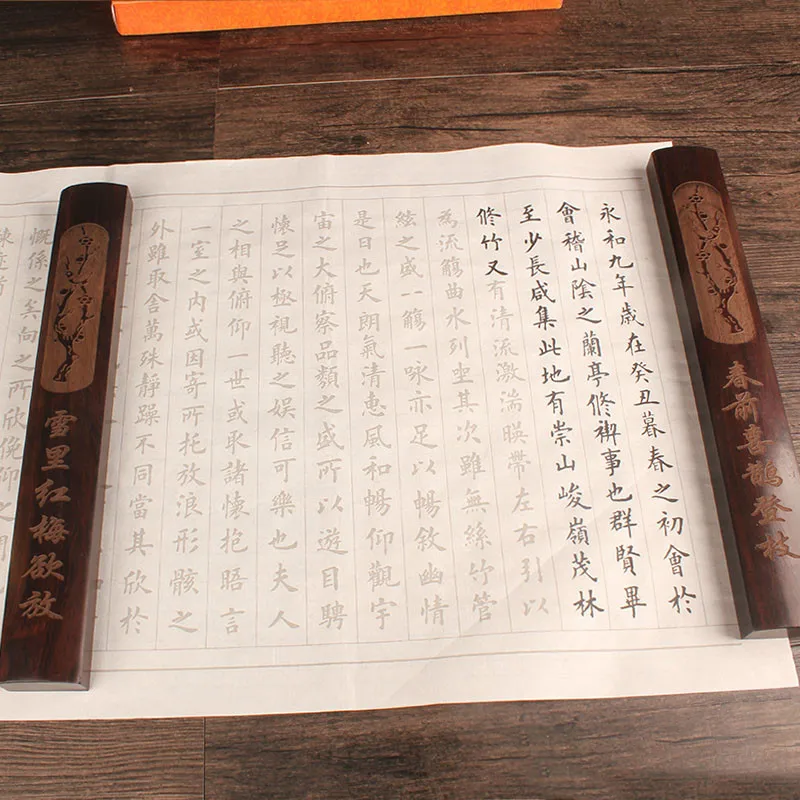 春前喜鹊登枝
永和九年歲在癸丑暮春之初會於
會稽山陰之蘭亭修禊事也群賢畢
至少長咸集此地有崇山峻嶺茂林
修竹又有清流激湍暎帶左右引以
為流觴曲水列坐其次雖無絲竹管
絃之盛一觴一詠亦足以暢敘幽情
是日也天朗氣清惠風和暢仰觀宇
宙之大俯察品類之盛所以遊目騁
懷足以極視聽之娱信可樂也夫人
之相與俯仰一世或取諸懷抱晤言
一室之内或因寄所托放浪形骸之
外雖取舍萬殊靜躁不同當其欣於
雪里红梅欲放
慨係之矣向之所欣俛仰之間